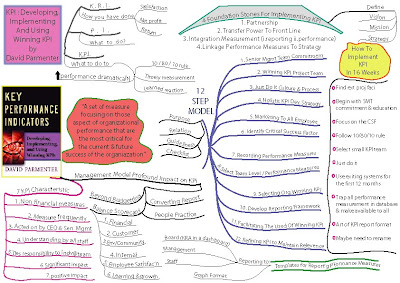 KPI - Developing,
Implementing
And Using
Winning KPI
by
David Parmenter
K.R.I.
How you have done
Satisfaction
No profit
Return
P.I.
What to do?
KPI
What to do to
performance dramatically)
10/80/10 rule
Theory measurement
Learned reaction
4 Foundation Stones For Implementing KPI
1. Partnership
2. Transfer Power To Front Line
3. Integration Measurement (i.reporting & performance)
4. Linkage Performance Measures To Strategy
Define
Vision
Mission
Strategy
How To
Implement
KPI
In 16 Weeks
Find ext proj faci
Begin with SMT
commitment & education
Focus on the CSF
Follow 10/80/10 rule
Select small KPI team
Just do it
Use existing systems for
the first 12 months
Trap all performance
measurement in database
& make available to all
Art of KPI report format
Maybe need to rename
12
STEP
MODEL
1. Senior Mgmt Team Commitment
2. Winning KPI Project Team
3. Just Do It Culture & Process
4. Holistic KPI Dev. Strategy
5. Marketing To All Employee
6. Identify Critical Success Factor
7. Recording Performance Measures
8. Select Team Level Performance Measures
9. Selecting Org Winning KPI
10. Develop Reporting Framework
11. Facilitating The Used Of Winning KPI
12. Refining KPI to Maintain Relevance
Purpose
Relation
Guidelines
Checklist
KEY
PERFORMANCE
INDICATORS
Developing,
Implementing,
and Using
Winning KPIs
DAVID PARMENTER
"A set of measure
focusing on those
aspect of organizational
performance that are
the most critical for
the current & future
success of the organization"
Management Model Profound Impact on KPI
Beyond Budgeting
Balance Scorecard
Converting Report
People Practice
1. Financial
2. Customer
3. Env/Community
4. Internal
5. Employee Satisfactn
6. Learning & growth
7 KPI Characteristic
1. Non financial measures
2. Measure frequently
3. Acted on by CEO & Sen. Mgmt
4. Understanding by all staff
5. Ties responsibility to indv/team
6. Significant impact
7. positive impact
Reporting to
Board (KRI in a dashboard)
Management
Staff
Graph Format
Templates For Reporting Performance Measures